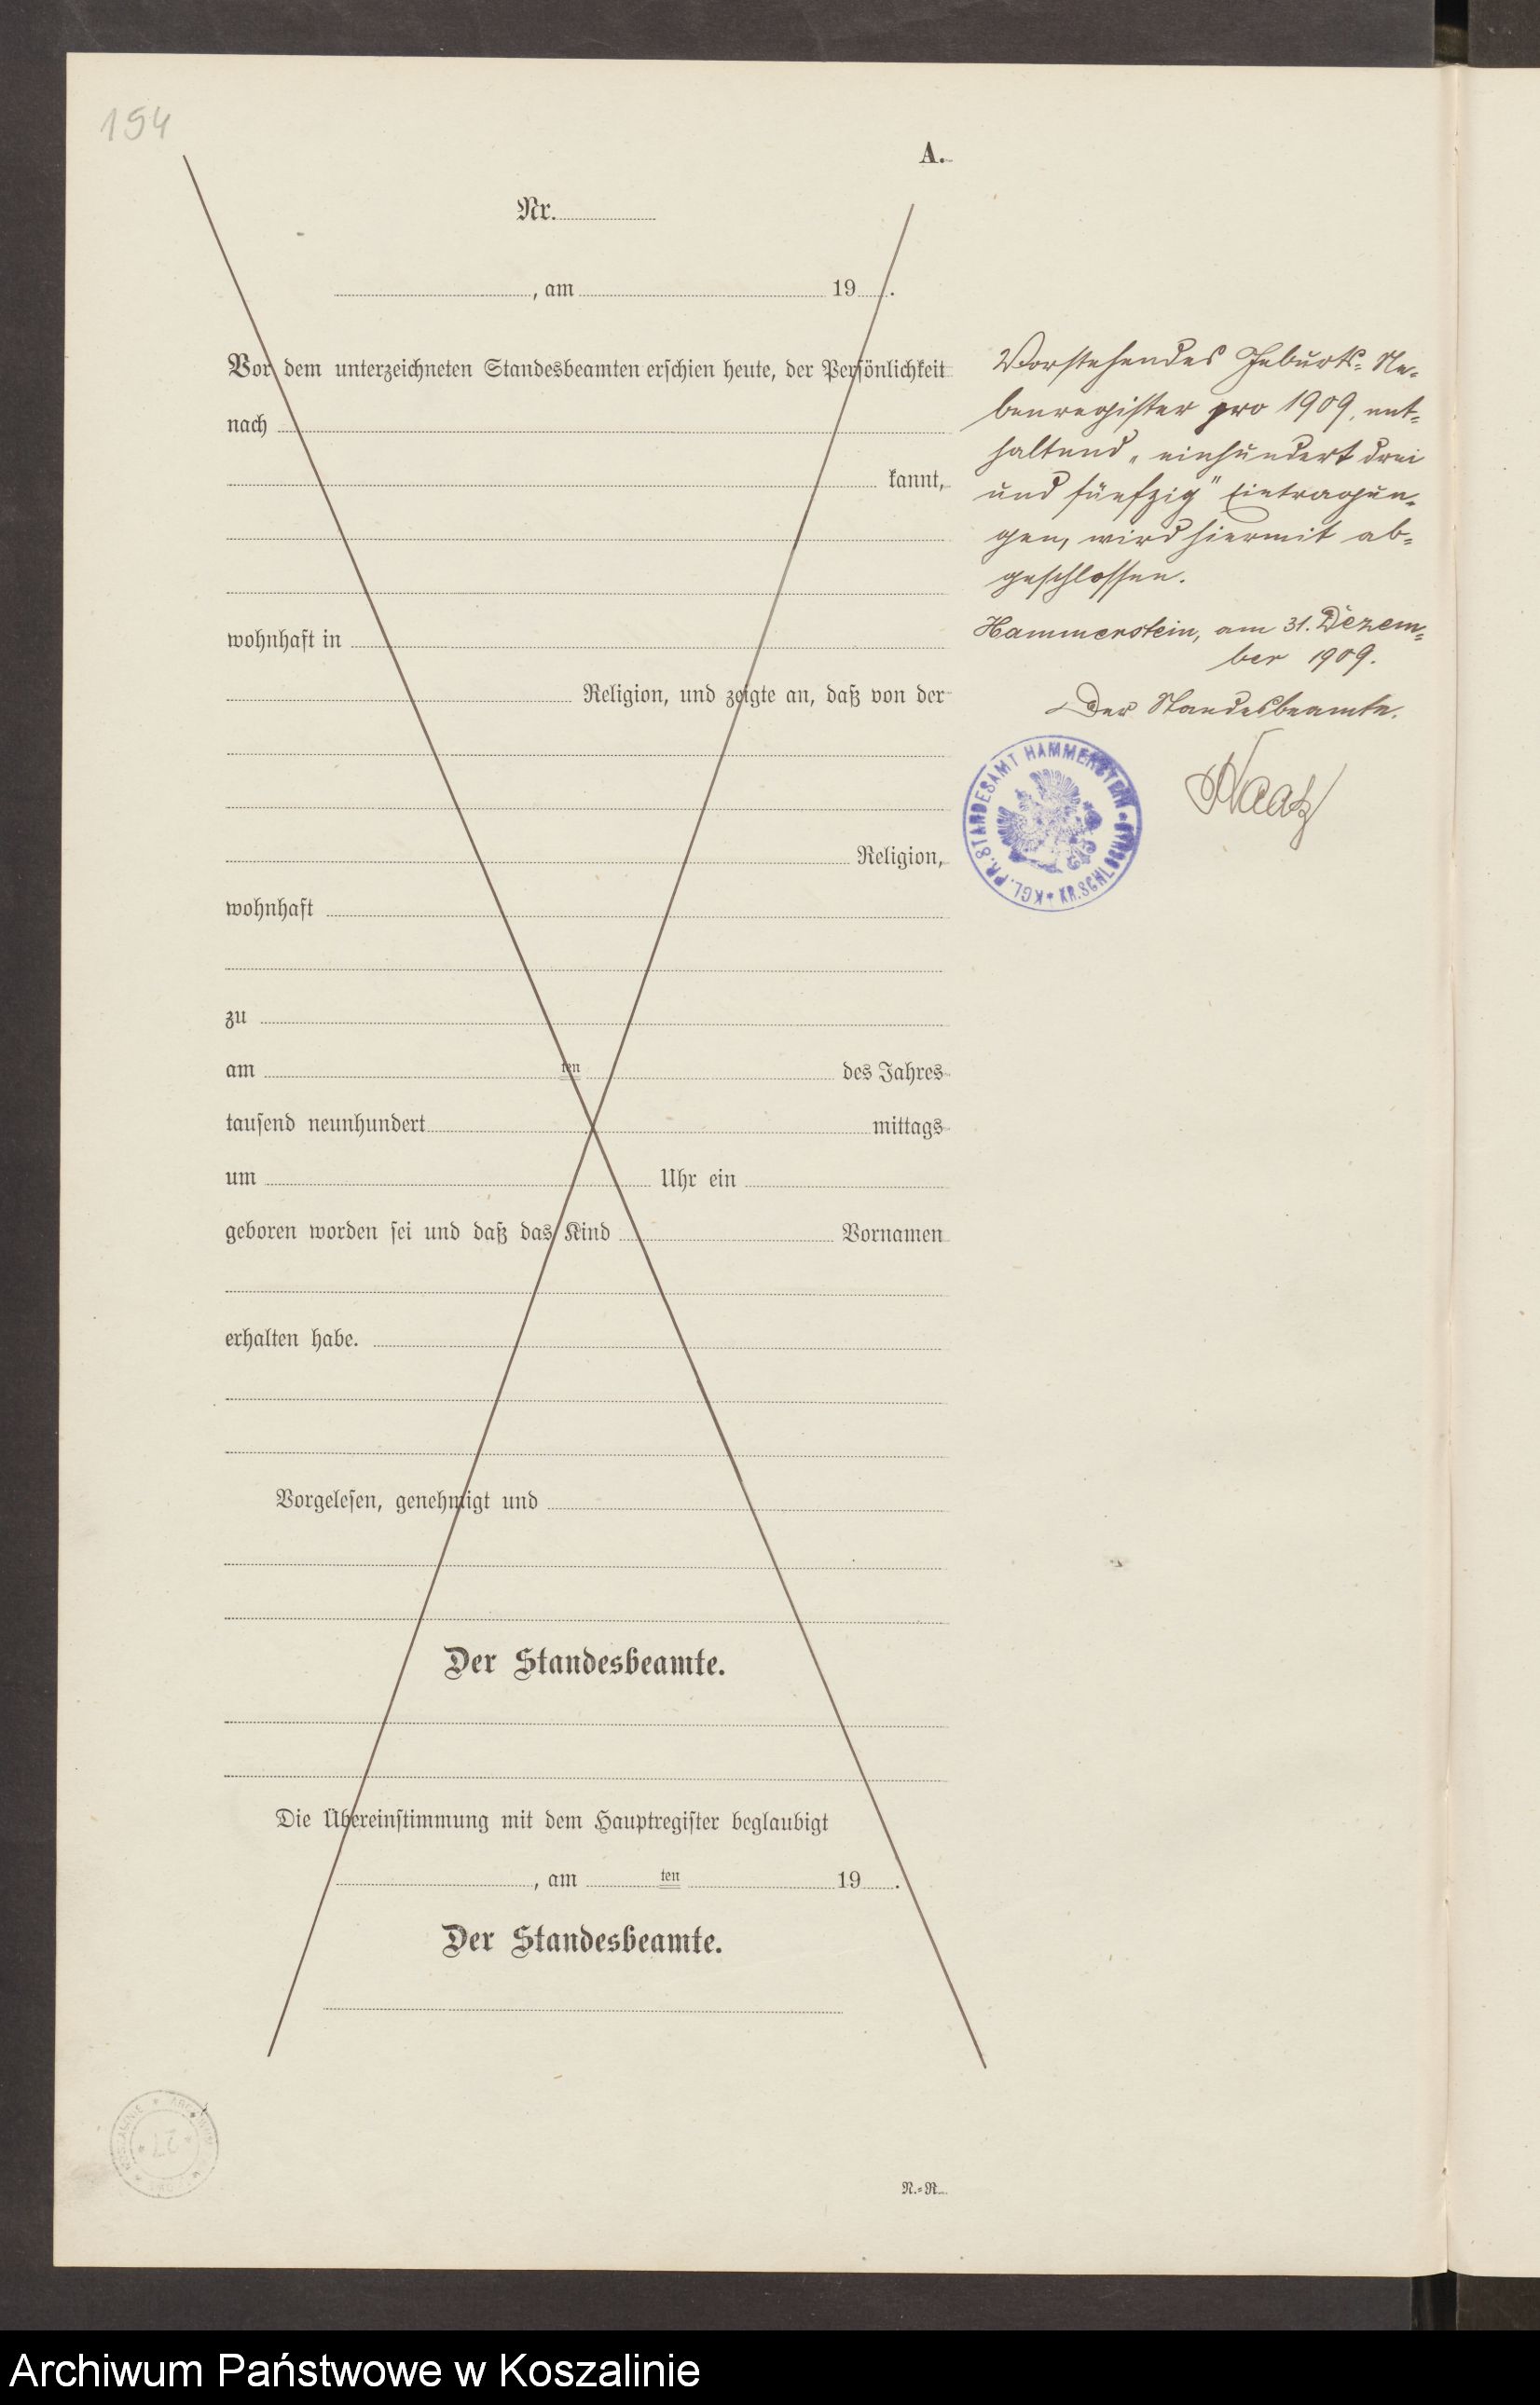 194
A.
Nr.
, am 19 .
Vor dem unterzeichneten Standesbeamten erschien heute, der Persönlichkeit
nach
kannt,
wohnhaft in
Religion, und zeigte an, daß von der
Religion,
wohnhaft
zu
am ten des Jahres
tausend neunhundert mittags
um Uhr ein
geboren worden sei und daß das Kind Vornamen
erhalten habe.
Vorgelesen, genehmigt und
Der Standesbeamte.
Die Übereinstimmung mit dem Hauptregister beglaubigt
, am ten 19 .
Der Standesbeamte.
N.=R.
Vorstehendes Geburts-Ne-
benregister pro 1909, ent-
haltend „einhundert drei
und fünfzig" Eintragun-
gen, wird hiermit ab-
geschlossen.
Hammerstein, am 31. Dezem-
ber 1909.
Der Standesbeamte.
KGL. PR. STANDESAMT HAMMERSTEIN
KR. SCHLOCHAU
27
Archiwum Państwowe w Koszalinie